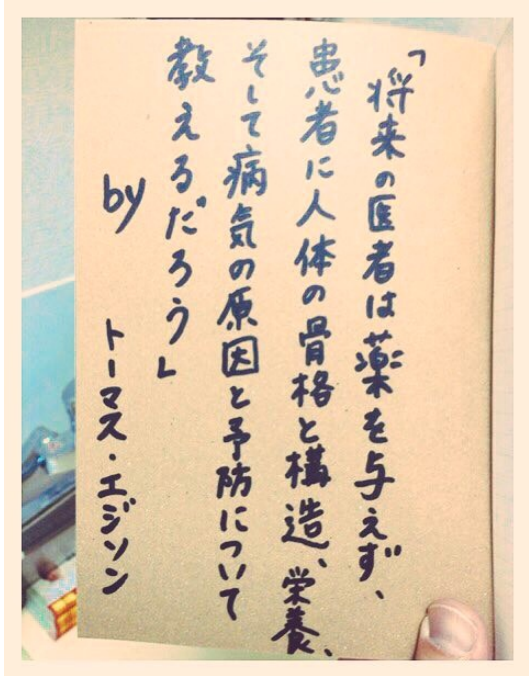 「将来の医者は薬を与えず、
患者に人体の骨格と構造、栄養、
そして病気の原因と予防について
教えるだろう」
by トーマス・エジソン